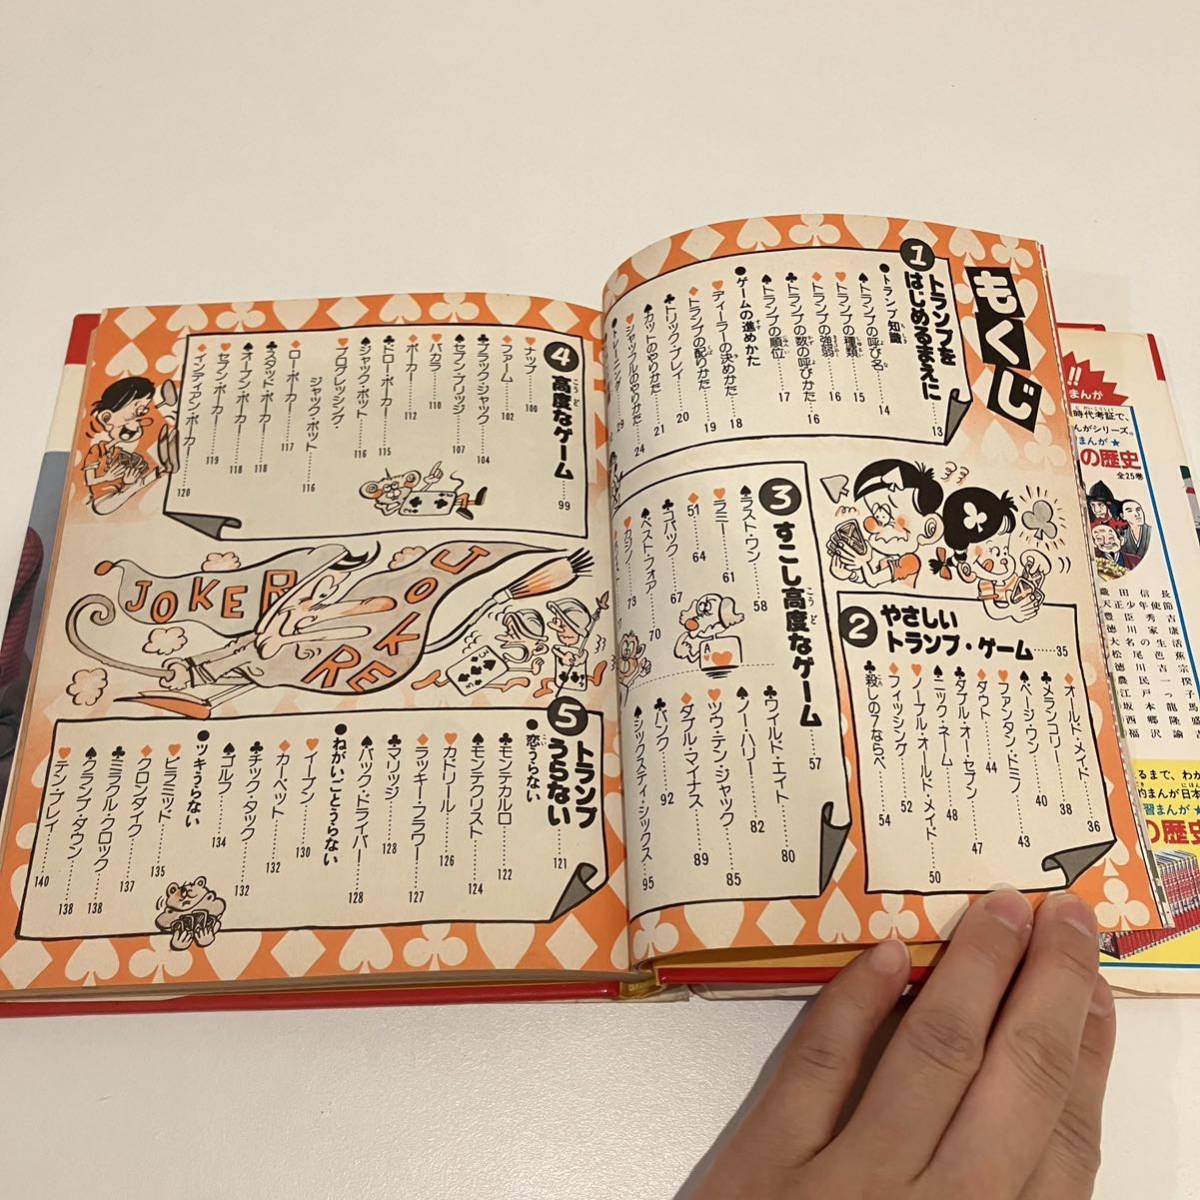 もくじ
1 トランプを
はじめるまえに……13
●トランプ知識
トランプの呼び名……14
トランプの種類……15
トランプの強弱……16
トランプの数の呼びかた……16
トランプの順位……17
●ゲームの進めかた
ディーラーの決めかた……18
トランプの配りかた……19
トリック・プレイ……20
カットのやりかた……21
シャッフルのやりかた……24
トレーニング……29
2 やさしい
トランプ・ゲーム……35
オールド・メイド……36
メランコリー……38
ページ・ワン……43
ファンタン・ドミノ……40
ダウト……44
ダブル・オー・セブン……47
ニック・ネーム……48
ノーブル・オールド・メイド……50
フィッシング……52
殺しの7ならべ……54
3 すこし高度なゲーム……57
ラスト・ワン……58
ラミー……61
51……64
コパック……67
ベスト・フォア……70
カジノ……73
ワイルド・エイト……80
ノー・ハリー……82
ツウ・テン・ジャック……85
ダブル・マイナス……89
バンク……92
シックスティ・シックス……95
4 高度なゲーム……99
ナップ……100
ファーム……102
ブラック・ジャック……104
セブン・ブリッジ……107
バカラ……110
ポーカー……112
ドロー・ポーカー……115
ジャック・ポット……116
プログレッシング・
ジャック・ポット……116
ロー・ポーカー……117
スタッド・ポーカー……118
オープン・ポーカー……118
セブン・ポーカー……119
インディアン・ポーカー……120
JOKER
JOKER
5 トランプ
うらない……121
●恋うらない
モンテカルロ……122
モンテクリスト……124
カドリール……126
ラッキー・フラワー……127
マリッジ……128
バック・ドライバー……128
●ねがいごとうらない
イーブン……130
カーペット……132
チック・タック……132
ゴルフ……134
●ツキうらない
ピラミッド……135
クロンダイク……137
ミラクル・クロック……138
クランプ・ダウン……138
テン・プレイ……140
!!
まんが
時代考証で、
んがシリーズ。
まんが★
の歴史
全25巻
織田信長
天正少年使節
豊臣秀吉
徳川家康
大名の生活
松尾芭蕉
徳川吉宗
農民一揆
江戸っ子
坂本龍馬
西郷隆盛
福沢諭吉
るまで、わか
的まんが日本
習まんが★
の歴史